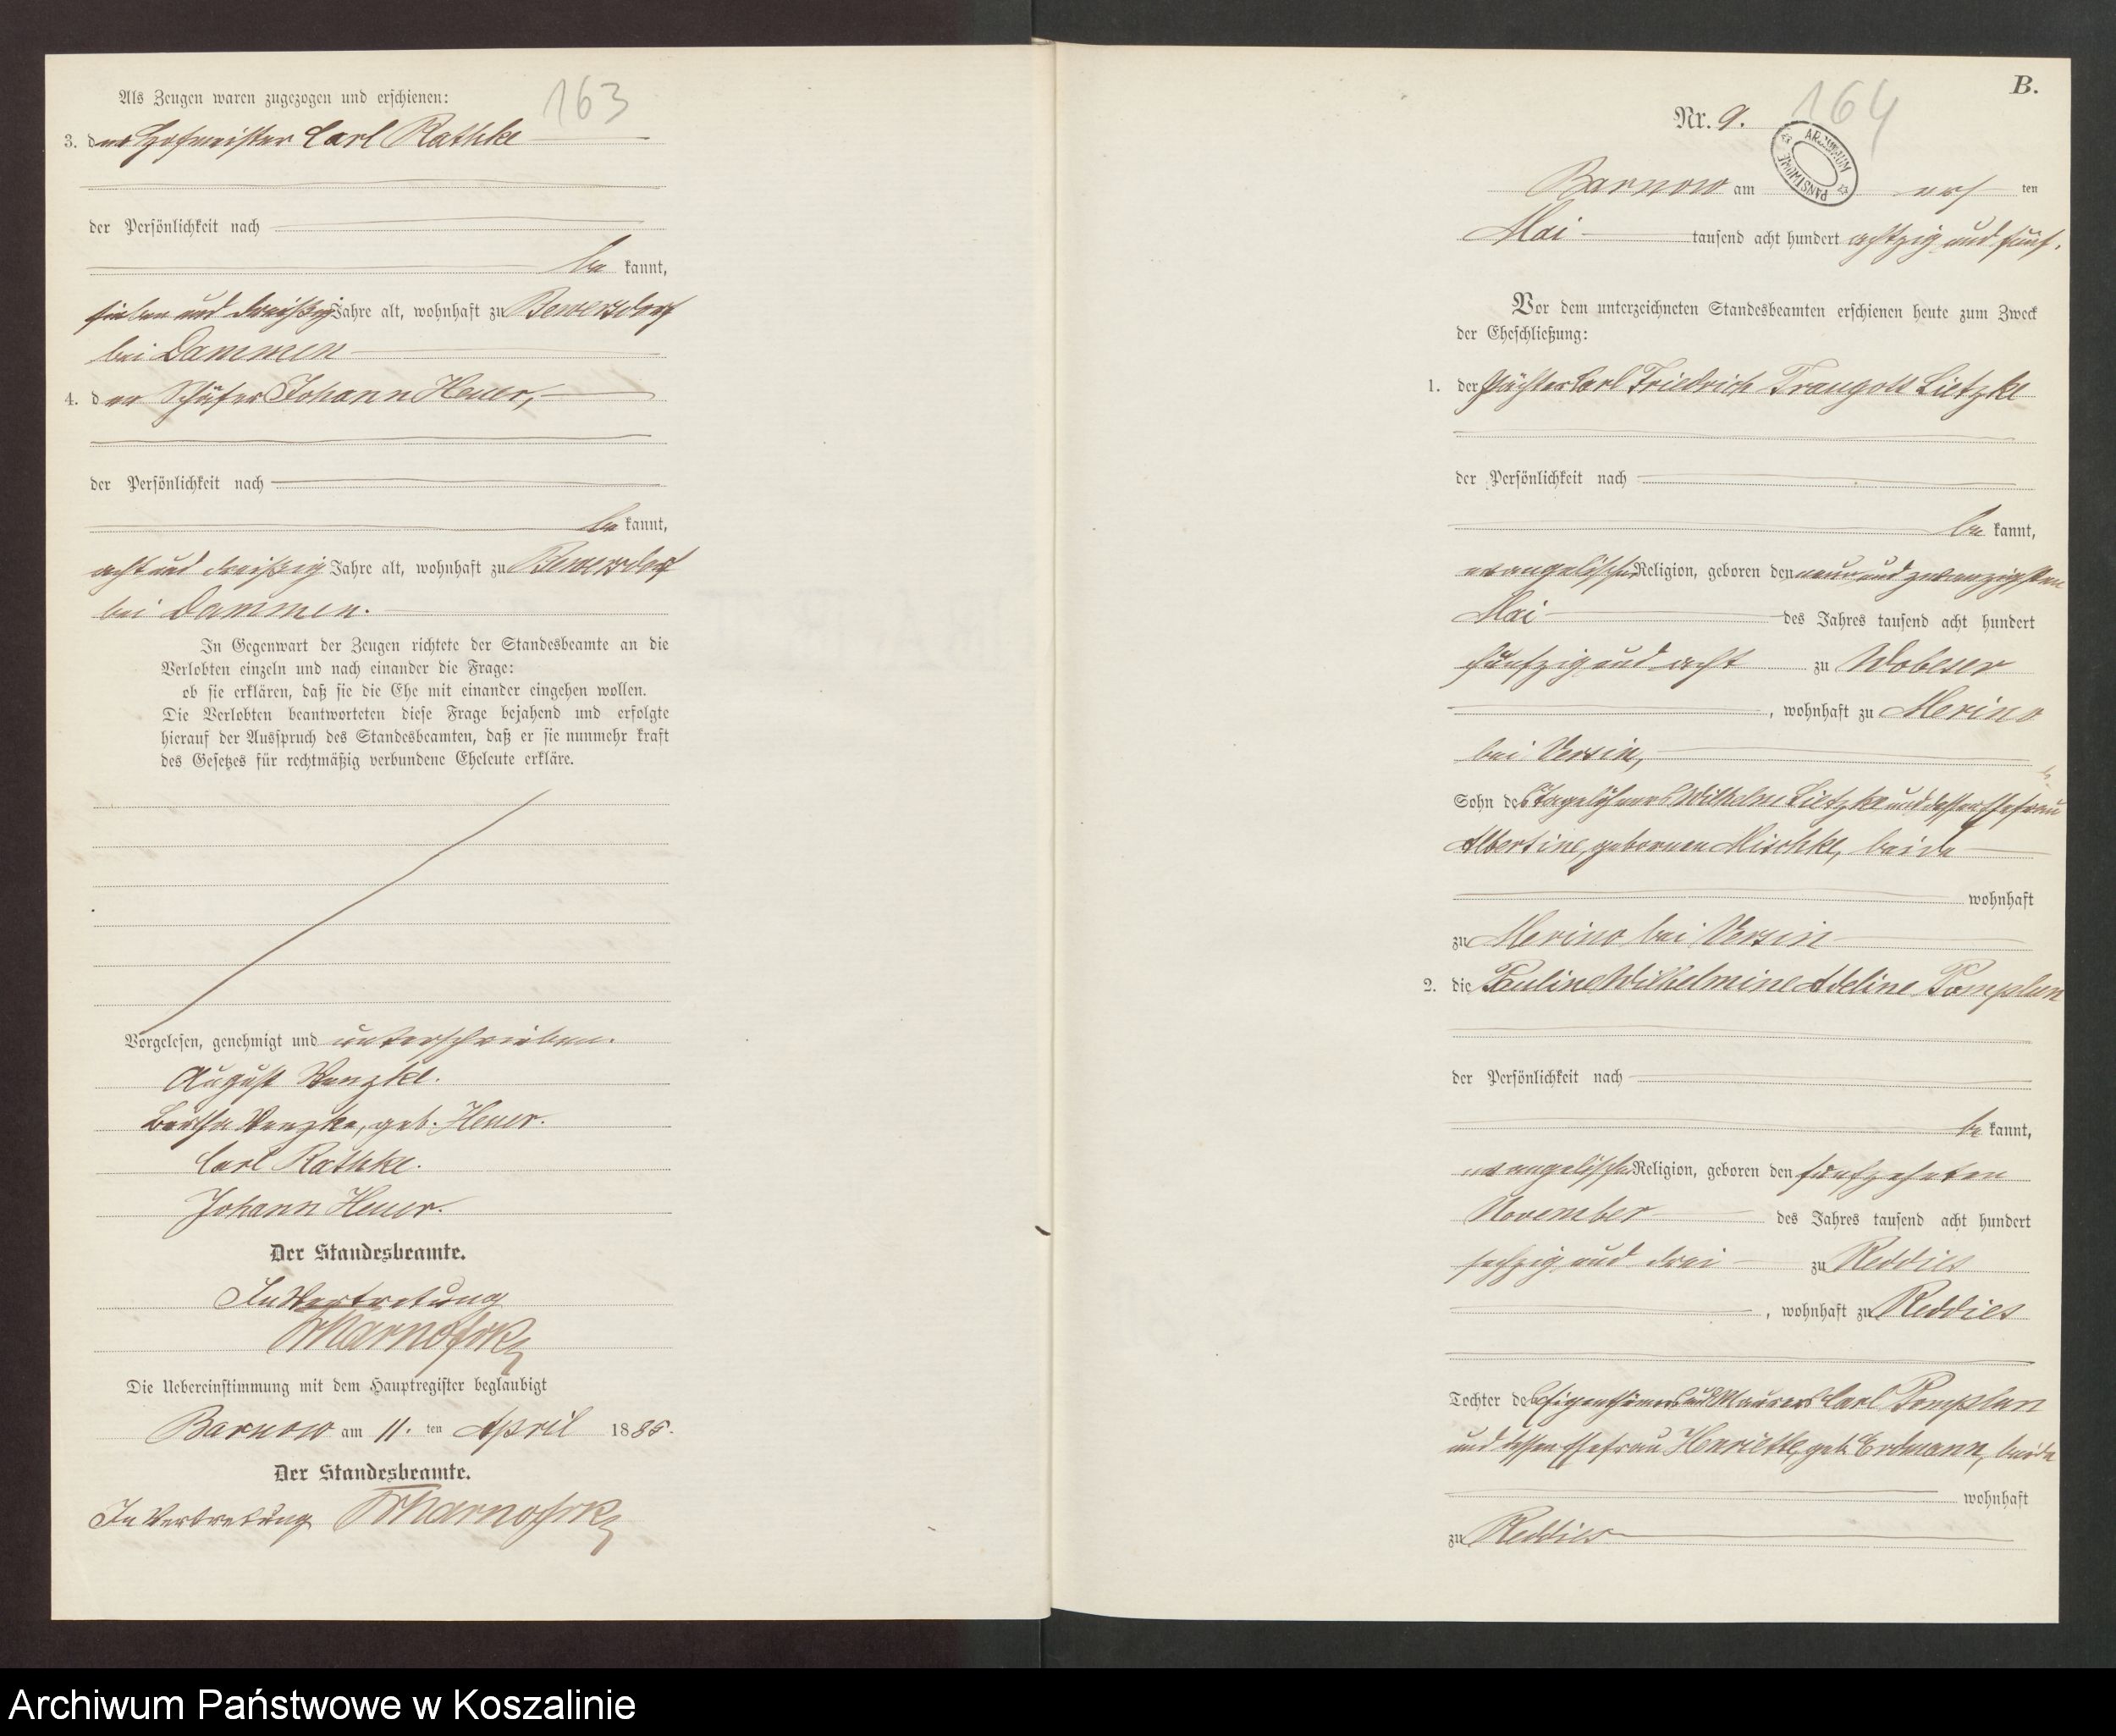 163
Als Zeugen waren zugezogen und erschienen:
3. der Hofmeister Carl Rathke
der Persönlichkeit nach
be kannt,
sieben und dreißig Jahre alt, wohnhaft zu Bewersdorf
bei Dammen
4. der Schäfer Johann Heuer,
der Persönlichkeit nach
be kannt,
acht und dreißig Jahre alt, wohnhaft zu Bewersdorf
bei Dammen.
In Gegenwart der Zeugen richtete der Standesbeamte an die
Verlobten einzeln und nach einander die Frage:
ob sie erklären, daß sie die Ehe mit einander eingehen wollen.
Die Verlobten beantworteten diese Frage bejahend und erfolgte
hierauf der Ausspruch des Standesbeamten, daß er sie nunmehr kraft
des Gesetzes für rechtmäßig verbundene Eheleute erkläre.
Vorgelesen, genehmigt und unterschrieben.
August Venzke.
Bertha Venzke, geb. Heuer.
Carl Rathke.
Johann Heuer.
Der Standesbeamte.
In Vertretung
Die Uebereinstimmung mit dem Hauptregister beglaubigt
Barnow am 11. ten April 1885.
Der Standesbeamte.
In Vertretung
B.
164
Nr. 9.
ARCHIWUM PAŃSTWOWE
Barnow am ers ten
Mai tausend acht hundert achtzig und fünf.
Vor dem unterzeichneten Standesbeamten erschienen heute zum Zweck
der Eheschließung:
1. der Pächter Carl Friedrich Traugott Lietzke
der Persönlichkeit nach
be kannt,
evangelischer Religion, geboren den neun und zwanzigsten
Mai des Jahres tausend acht hundert
fünfzig und acht zu Wobeser
, wohnhaft zu Merino
bei Versin,
Sohn des Tagelöhners Wilhelm Lietzke und dessen Ehefrau
Albertine, gebornen Mischke, beide
wohnhaft
zu Merino bei Versin
2. die Pauline Wilhelmine Adeline Pomplun
der Persönlichkeit nach
be kannt,
evangelischer Religion, geboren den fünfzehnten
November des Jahres tausend acht hundert
sechzig und drei zu Reddies
, wohnhaft zu Reddies
Tochter des Eigenthümers und Maurers Carl Pomplun
und dessen Ehefrau Henriette, geb. Erdmann, beide
wohnhaft
zu Reddies
Archiwum Państwowe w Koszalinie